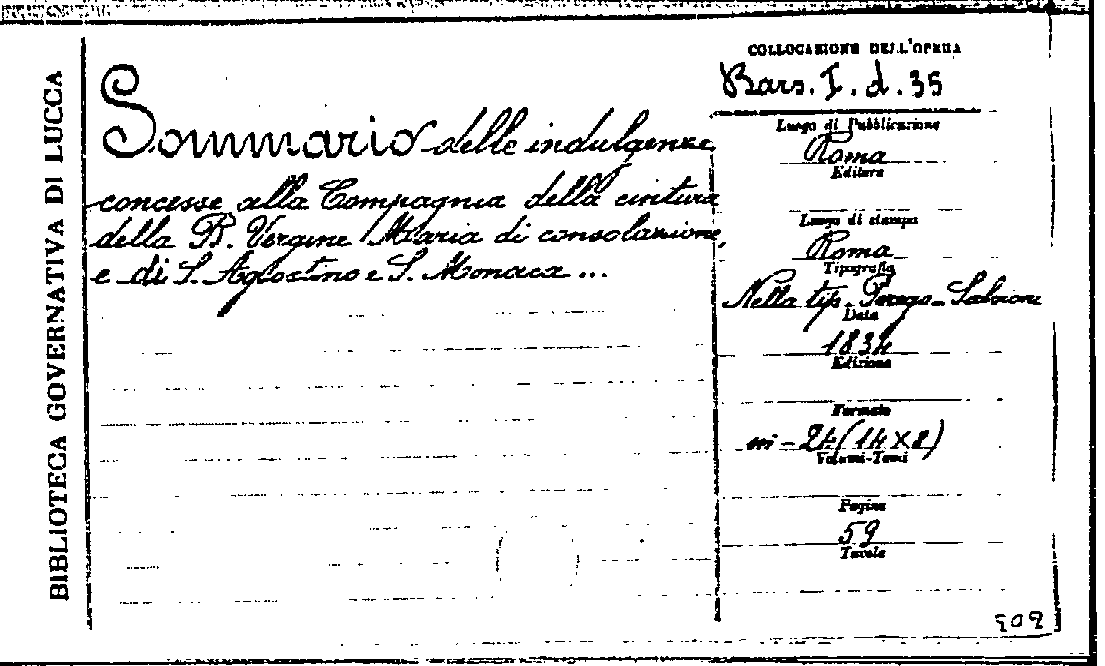 BIBLIOTECA GOVERNATIVA DI LUCCA
Sommario delle indulgenze
concesse alla Compagnia della cintura
della B. Vergine Maria di consolazione,
e di S. Agostino e S. Monaca ...
COLLOCAZIONE DELL'OPERA
Bars. I. d. 35
Luogo di Pubblicazione
Roma
Editore
Luogo di stampa
Roma
Tipografia
Nella tip. Perego-Salvioni
Data
1834
Edizione
Formato
in-24 (14x8)
Volumi-Tomi
Pagine
59
Tavole